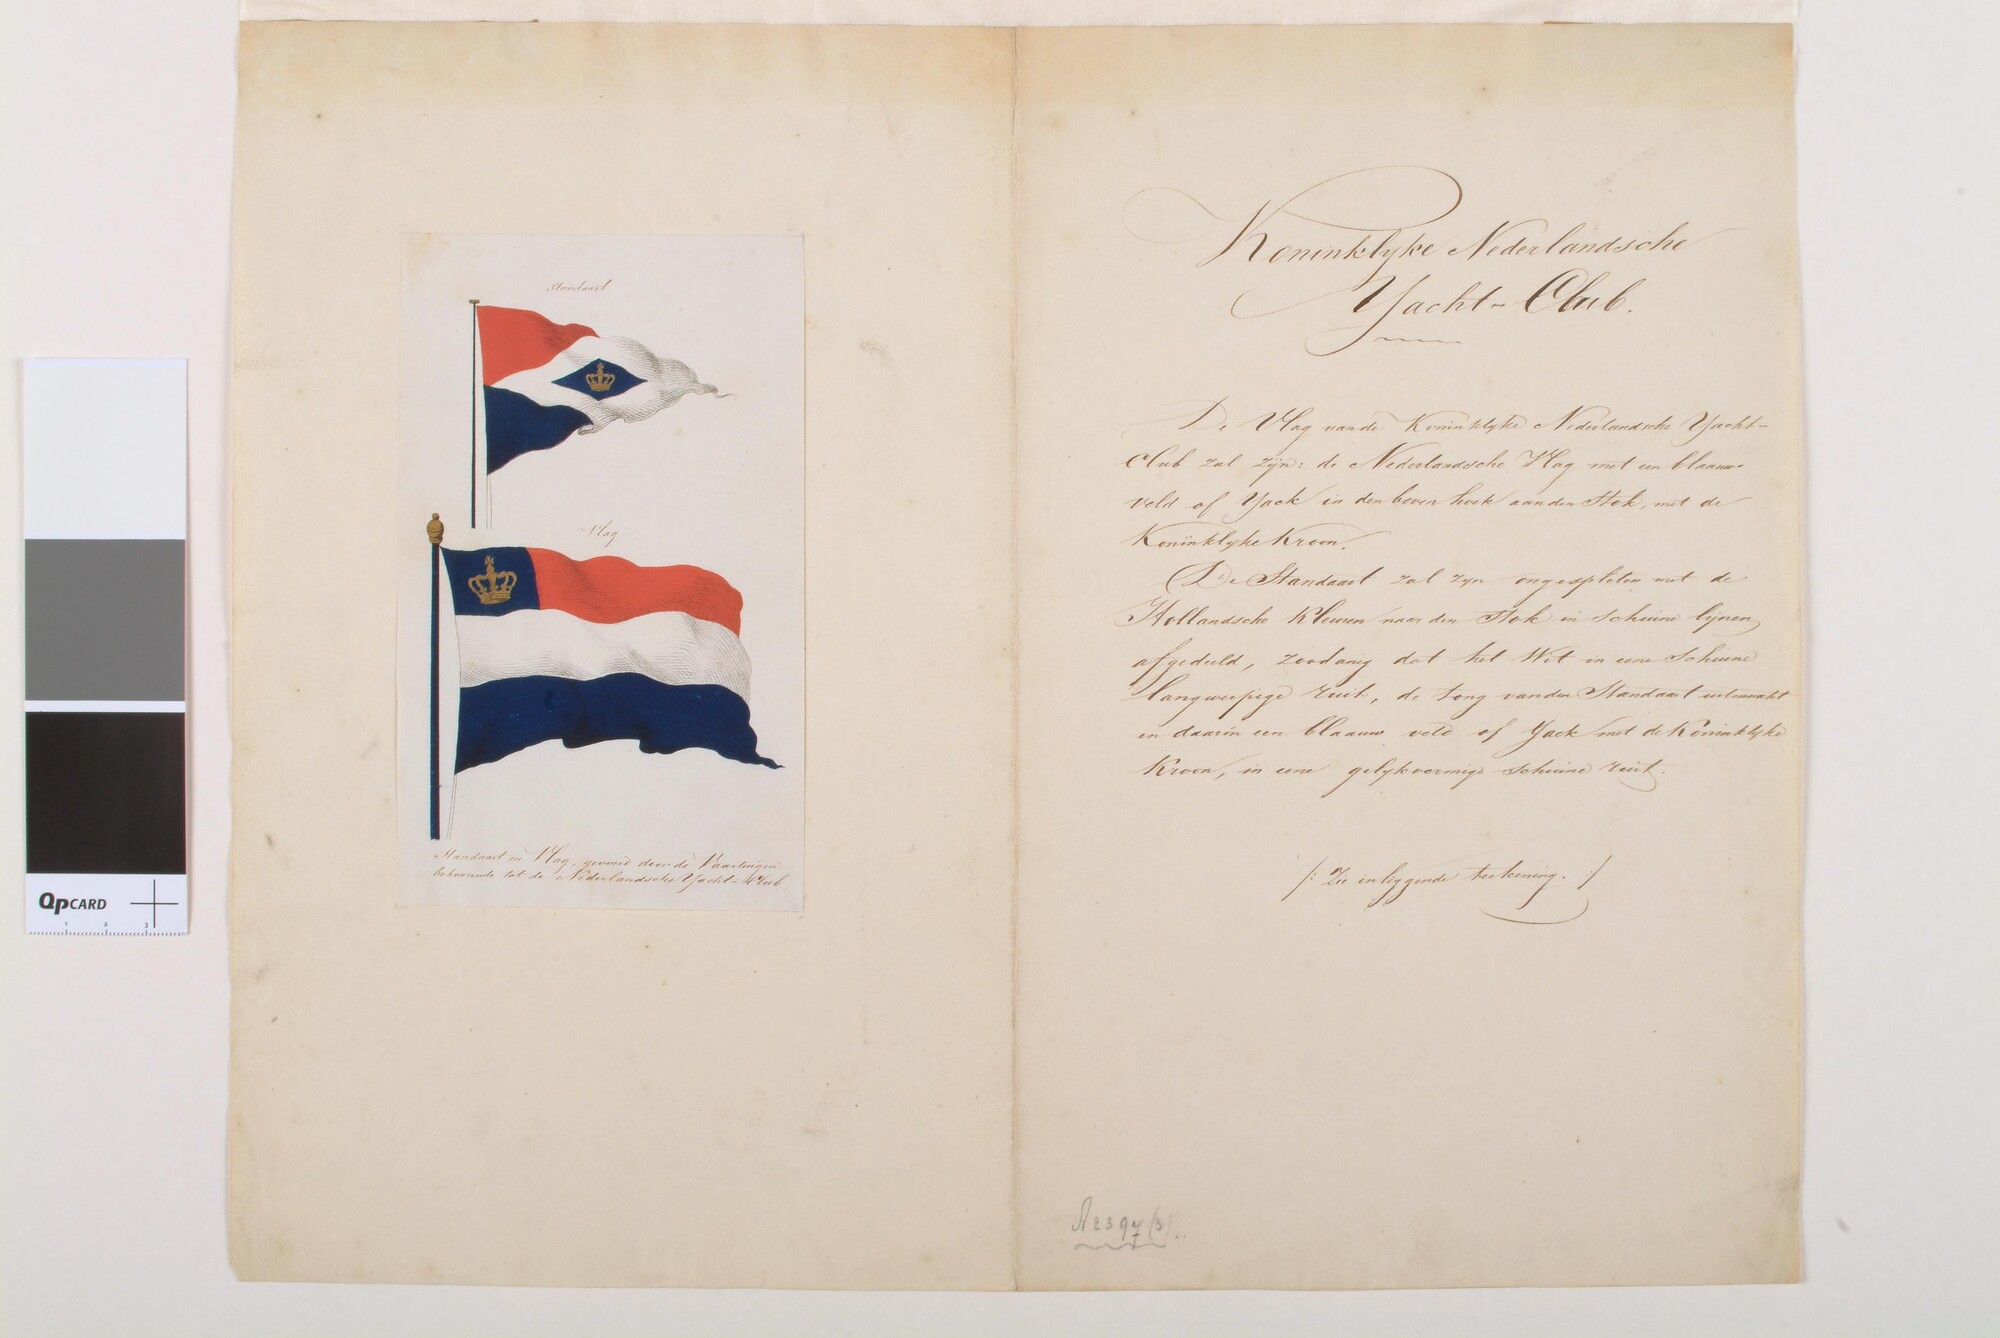 Standaart
Vlag
Standaart en Vlag, gevoerd door de Vaartuigen
behoorende tot de Nederlandsche Yacht-Club
Koninklyke Nederlandsche
Yacht-Club.
De Vlag van de Koninklyke Nederlandsche Yacht-
Club zal zijn: de Nederlandsche Vlag met een blaauw
veld of Yack in den boven hoek aan den Stok, met de
Koninklyke Kroon.
De Standaart zal zyn ongespleten met de
Hollandsche Kleuren naar den Stok in schuine lijnen
afgedeeld, zoodanig dat het Wit in eene Schuine
langwerpige ruit, de tong van den Standaart uitmaakt
en daarin een blaauw veld of Yack met de Koninklyke
Kroon, in eene gelykvormige schuine ruit.
/: Zie inliggende teekening. :/
A 2397 (3)
QpCARD
1 2 3